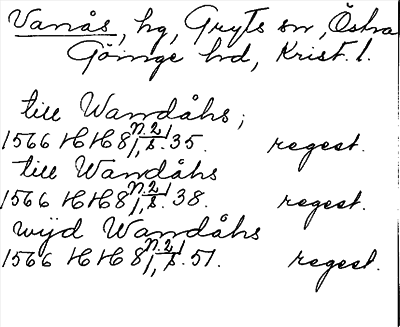 Vanås, hg, Gryts sn, Östra
Göinge hd, Krist. l.
till Wandåhs;
1566 HH 8 n.2/1, s. 35. regest.
till Wandåhs
1566 HH 8 n.2/1, s. 38. regest.
wijd Wandåhs
1566 HH 8 n.2/1, s. 51. regest.